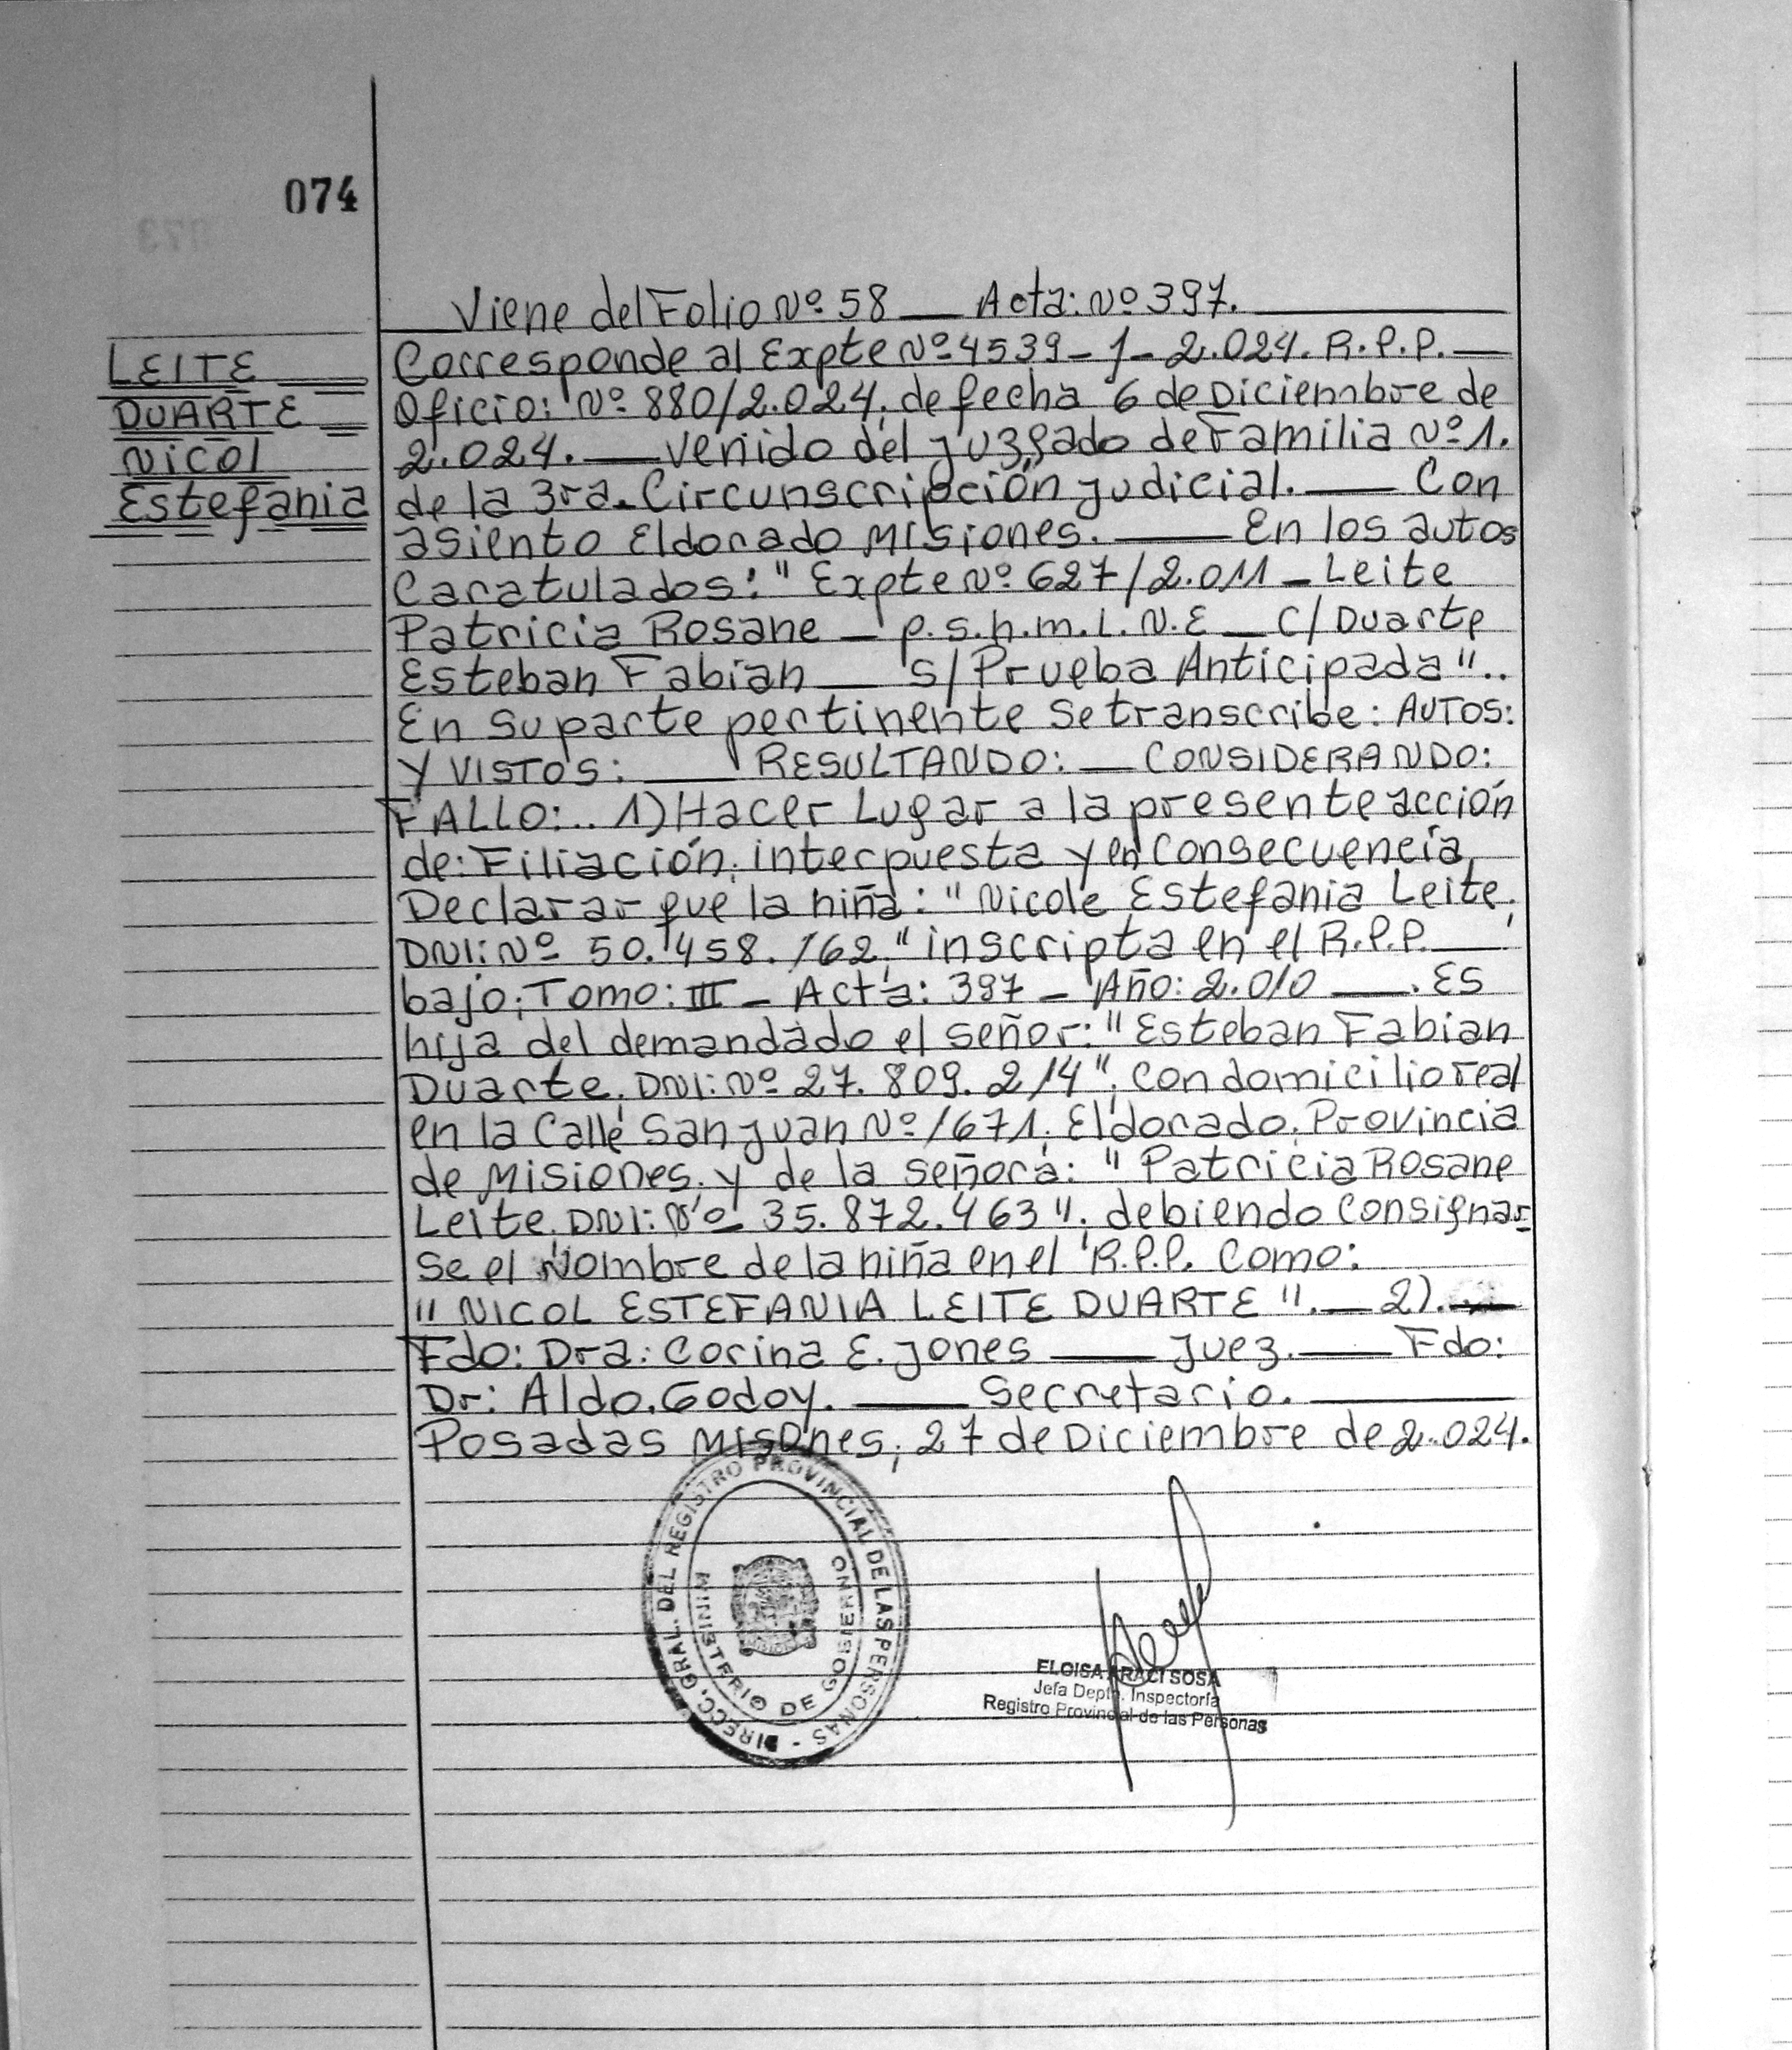 074
Viene del Folio Nº 58 __ Acta: Nº 397.
LEITE
DUARTE
Nicol
Estefania
Corresponde al Expte Nº 4539-1-2.024. R.P.P.
Oficio: Nº 880/2.024, de fecha 6 de Diciembre de
2.024. __ venido del juzgado de Familia Nº 1.
de la 3ra. Circunscripción judicial. __ Con
asiento Eldorado Misiones. __ En los autos
Caratulados: "Expte Nº 627/2.011 - Leite
Patricia Rosane - p.s.h.m.L.N.E - C/ Duarte
Esteban Fabian __ S/ Prueba Anticipada"..
En su parte pertinente se transcribe: AUTOS:
Y VISTOS: __ RESULTANDO: __ CONSIDERANDO:
FALLO:.. 1) Hacer Lugar a la presente acción
de: Filiación, interpuesta y en Consecuencia,
Declarar que la niña: "Nicole Estefania Leite,
DNI: Nº 50.458.162," inscripta en el R.P.P. __,
bajo; Tomo: III - Acta: 397 - Año: 2.010 __. Es
hija del demandado el señor: "Esteban Fabian
Duarte, DNI: Nº 27.809.214", con domicilio real
en la Calle San Juan Nº 1671, Eldorado, Provincia
de Misiones, y de la señora: "Patricia Rosane
Leite, DNI: Nº 35.872.463", debiendo Consignar-
se el Nombre de la niña en el R.P.P. Como:
"NICOL ESTEFANIA LEITE DUARTE". __ 2).
Fdo: Dra: Corina E. Jones __ Juez. __ Fdo:
Dr: Aldo. Godoy. __ Secretario.
Posadas Misones, 27 de Diciembre de 2.024.
DIRECC. GRAL. DEL REGISTRO PROVINCIAL DE LAS PERSONAS -
MINISTERIO DE GOBIERNO
ELOISA ARACI SOSA
Jefa Depto. Inspectoría
Registro Provincial de las Personas